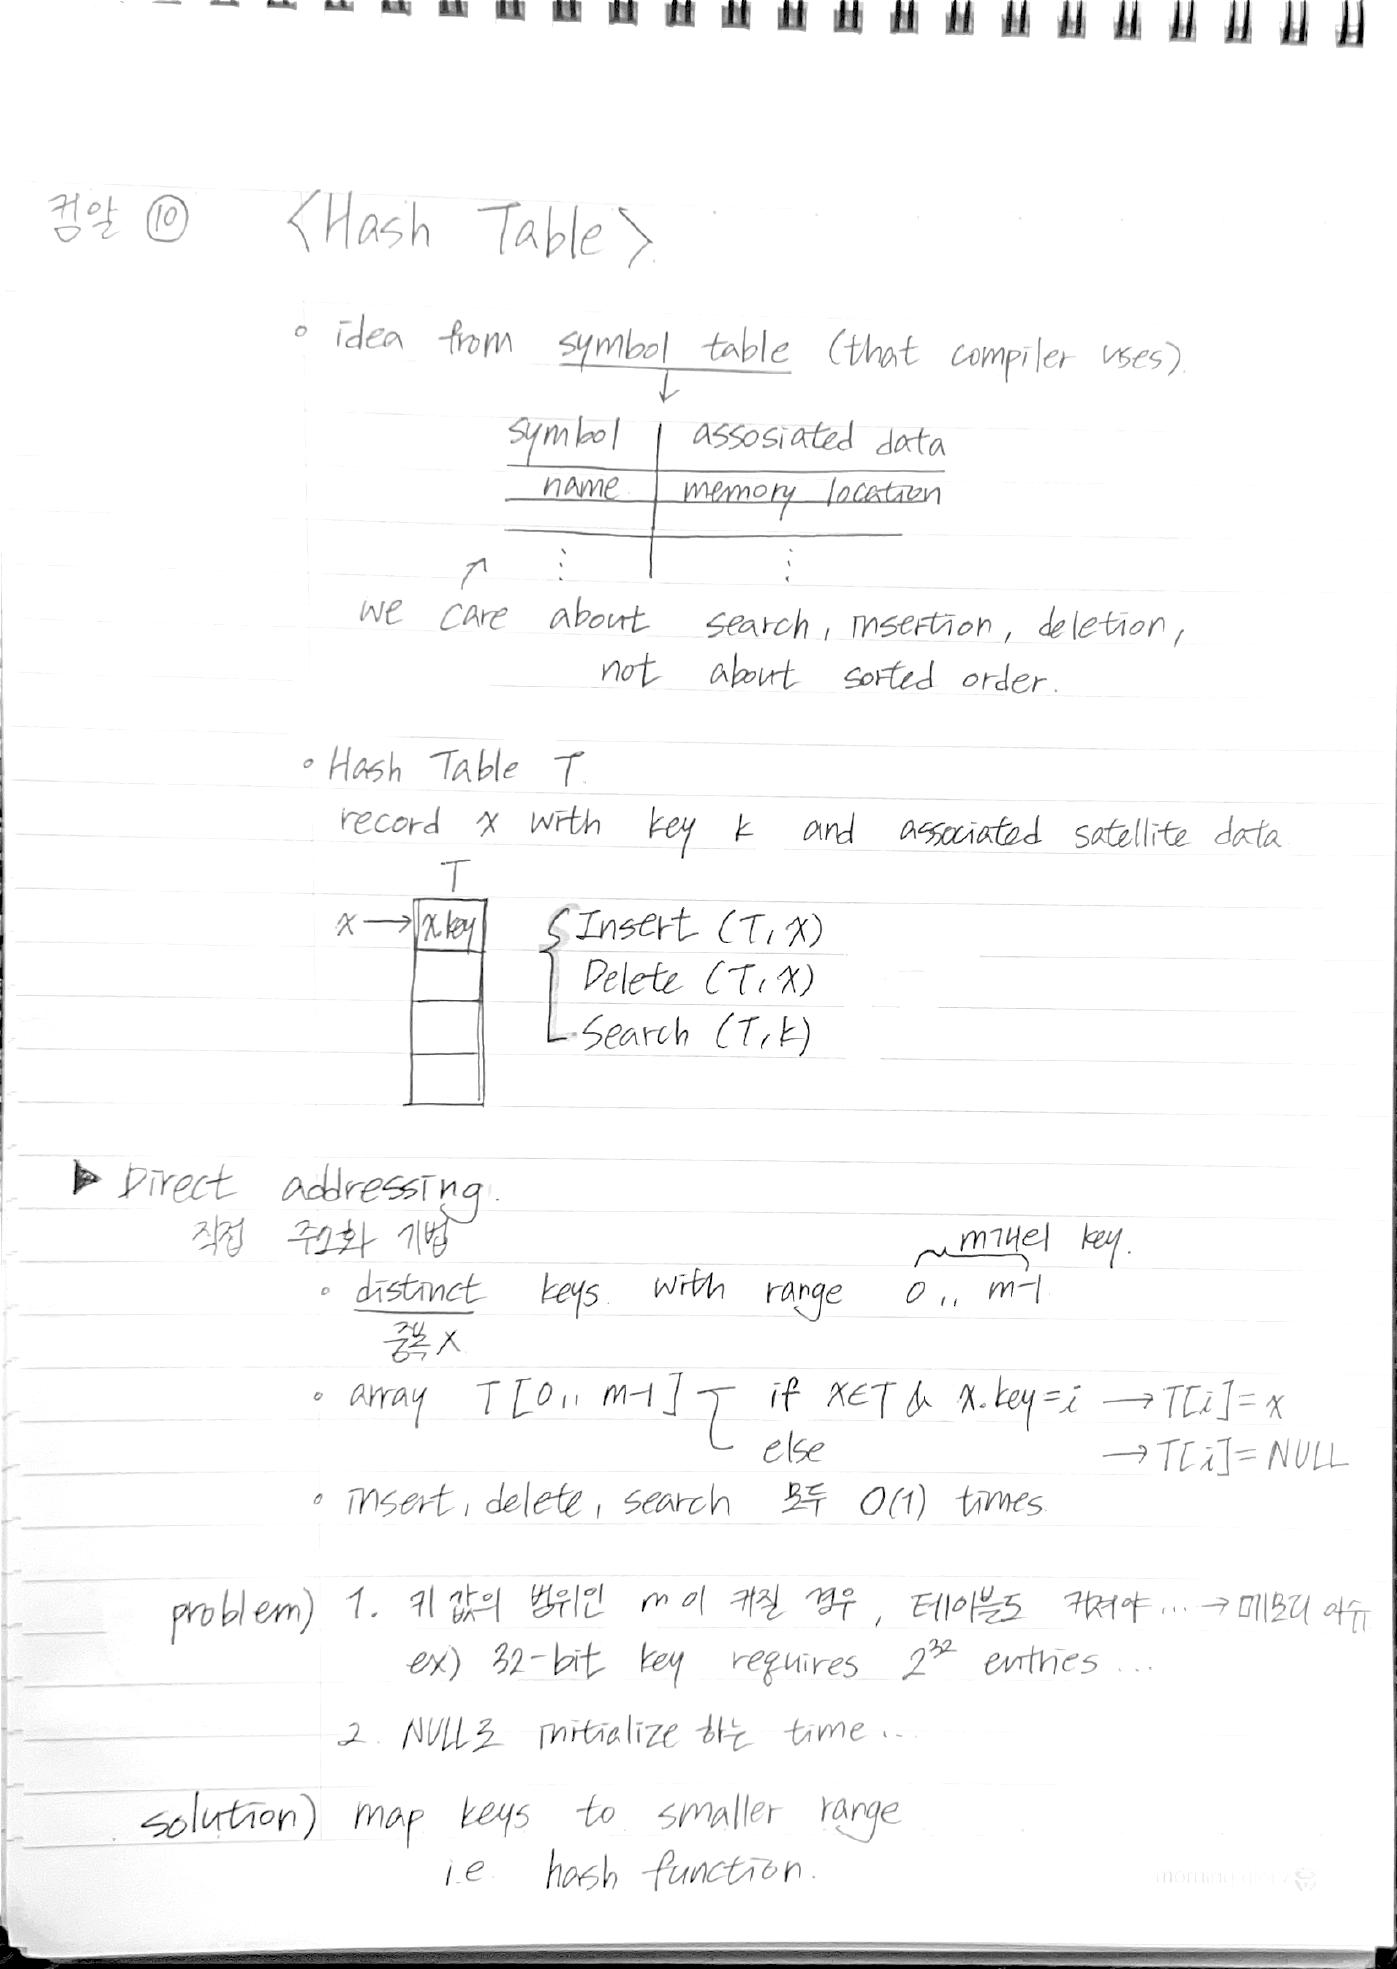 컴알 ⑩ <Hash Table>
◦ idea from symbol table (that compiler uses).
↓
symbol | assosiated data
name | memory location
⋮ ⋮
↗
we care about search, insertion, deletion,
not about sorted order.
◦ Hash Table T.
record x with key k and associated satellite data
T
x → x.key
Insert (T, x)
Delete (T, x)
Search (T, k)
▶ Direct addressing.
직접 주소화 기법
m개의 key.
◦ distinct keys with range 0 .. m-1
중복 X
◦ array T[0 .. m-1] if x∈T & x.key=i → T[i]=x
else → T[i]=NULL
◦ insert, delete, search 모두 O(1) times
problem) 1. 키 값의 범위인 m이 커질 경우, 테이블도 커져야 ... → 메모리 이슈
ex) 32-bit key requires 2³² entries ...
2. NULL로 initialize 하는 time ..
solution) map keys to smaller range
i.e. hash function.